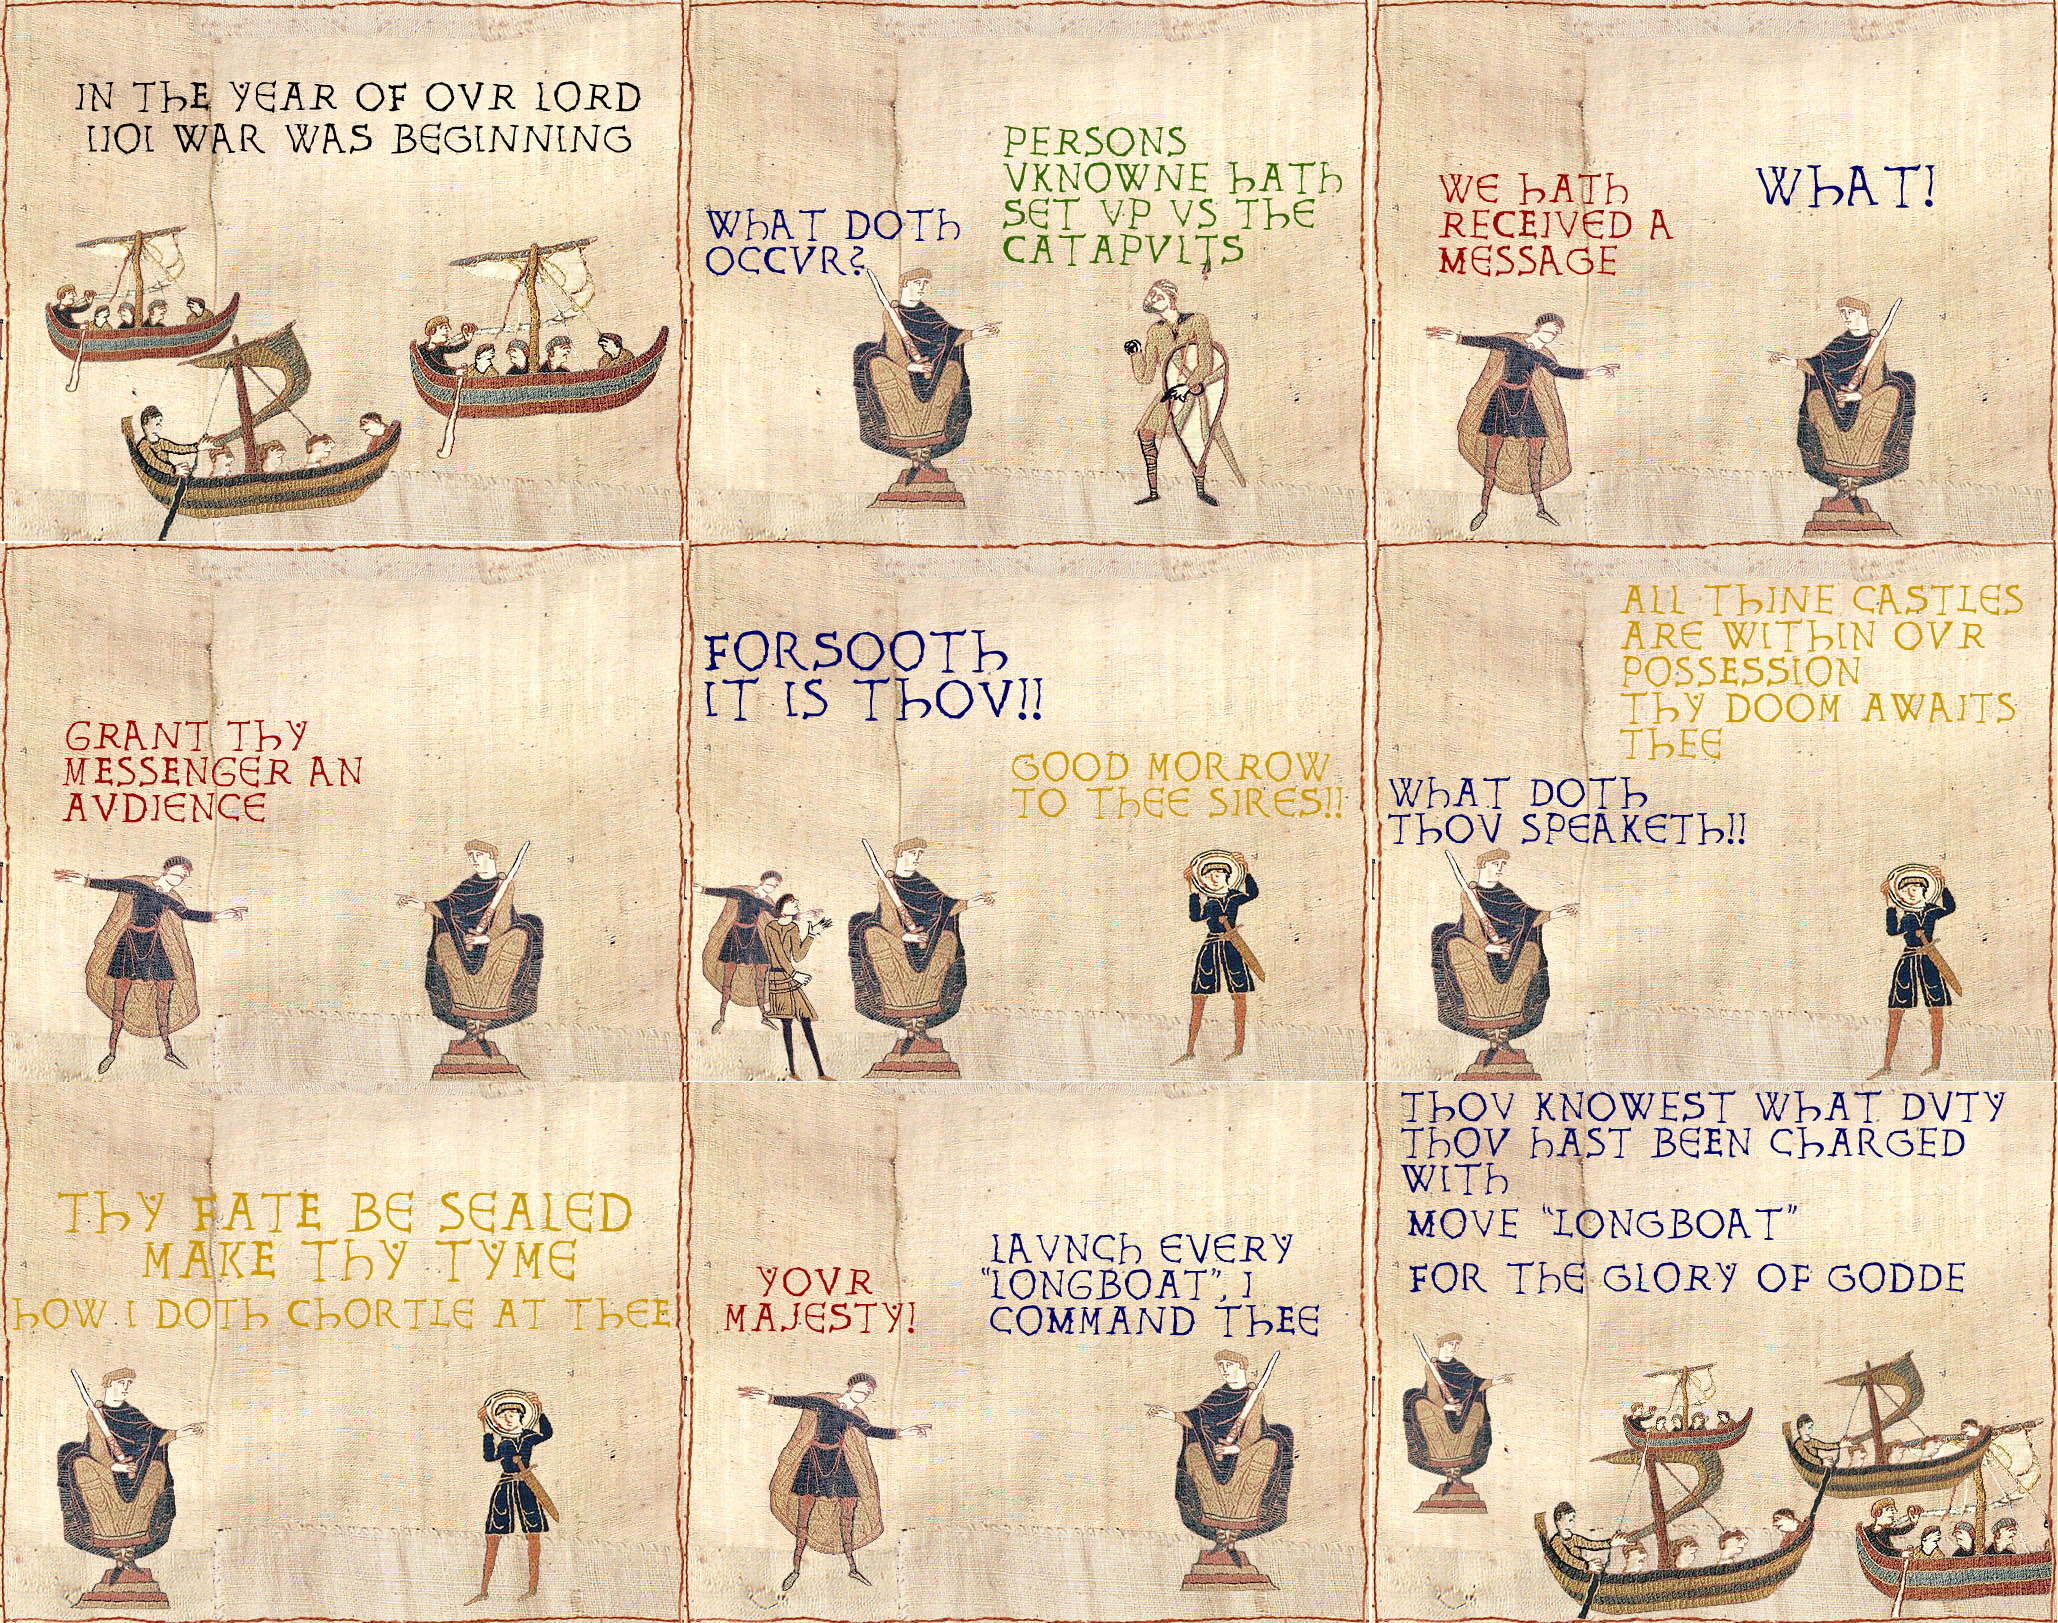 IN THE YEAR OF OVR LORD
1101 WAR WAS BEGINNING
WHAT DOTH
OCCVR?
PERSONS
VKNOWNE HATH
SET VP VS THE
CATAPVLTS
WE HATH
RECEIVED A
MESSAGE
WHAT!
GRANT THY
MESSENGER AN
AVDIENCE
FORSOOTH
IT IS THOV!!
GOOD MORROW
TO THEE SIRES!!
WHAT DOTH
THOV SPEAKETH!!
ALL THINE CASTLES
ARE WITHIN OVR
POSSESSION
THY DOOM AWAITS
THEE
THY FATE BE SEALED
MAKE THY TYME
HOW I DOTH CHORTLE AT THEE
YOVR
MAJESTY!
LAVNCH EVERY
"LONGBOAT", I
COMMAND THEE
THOV KNOWEST WHAT DVTY
THOV HAST BEEN CHARGED
WITH
MOVE "LONGBOAT"
FOR THE GLORY OF GODDE